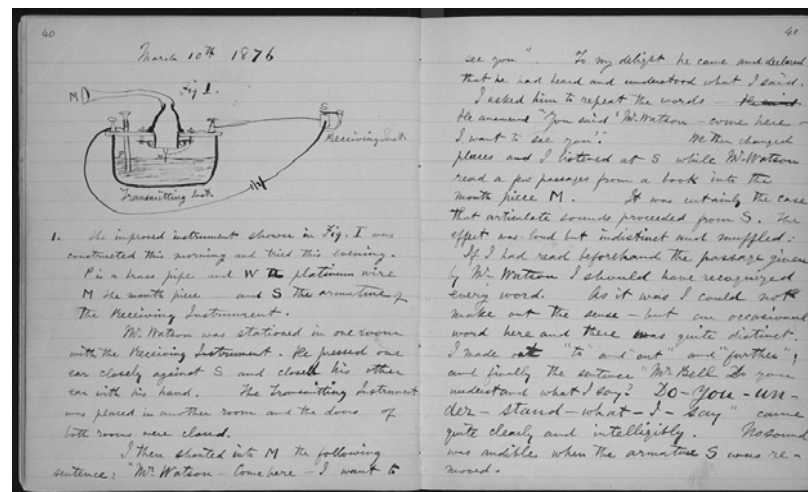 40
March 10th 1876
Fig 1.
M
S
Receiving Inst.
Transmitting Inst.
1. The improved instrument shown in Fig. I was
constructed this morning and tried this evening.
P is a brass pipe and W the platinum wire
M the mouth piece — and S the armature of
the Receiving Instrument.
Mr. Watson was stationed in one room
with the Receiving Instrument. He pressed one
ear closely against S and closed his other
ear with his hand. The Transmitting Instrument
was placed in another room and the doors of
both rooms were closed.
I then shouted into M the following
sentence: "Mr. Watson — Come here — I want to
41
see you". To my delight he came and declared
that he had heard and understood what I said.
I asked him to repeat the words —
He answered "You said 'Mr. Watson — come here —
I want to see you'." We then changed
places and I listened at S while Mr. Watson
read a few passages from a book into the
mouth piece M. It was certainly the case
that articulate sounds proceeded from S. The
effect was loud but indistinct and muffled.
If I had read beforehand the passage given
by Mr. Watson I should have recognized
every word. As it was I could not
make out the sense — but an occasional
word here and there was quite distinct.
I made out "to" and "out" and "further";
and finally the sentence "Mr. Bell Do you
understand what I say? Do – you – un –
der – stand – what – I – say" came
quite clearly and intelligibly. No sound
was audible when the armature S was re-
moved.